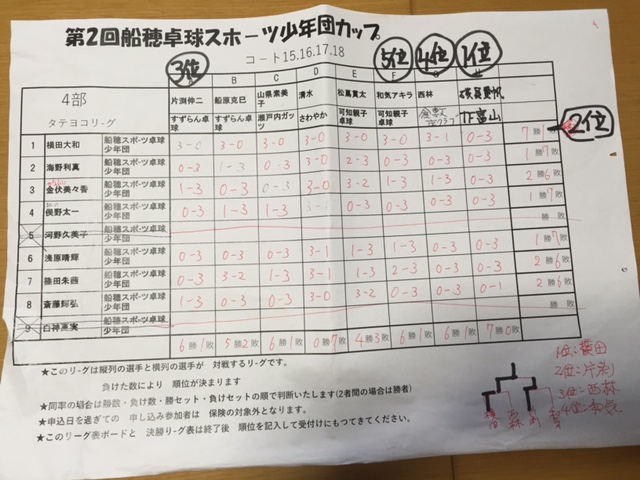 第2回船穂卓球スポーツ少年団カップ
コート15.16.17.18
3位 5位 4位 1位
4部 A B C D E F H
タテヨコリーグ 片渕伸二 船原克巳 山県素美子 清水 松蔦貫太 和気アキラ 西林
すずらん卓球 すずらん卓球 瀬戸内ガッツ さわやか 可知親子卓球 可知親子卓球 下富山
2位
1 横田大和 船穂スポーツ卓球少年団 3-0 3-0 3-0 3-0 3-0 3-0 3-1 0-3 7勝1敗
2 海野利真 船穂スポーツ卓球少年団 0-3 1-3 0-3 3-0 2-3 0-3 0-3 0-3 1勝7敗
3 金伏美々香 船穂スポーツ卓球少年団 1-3 0-3 0-3 3-0 3-2 1-3 1-3 0-3 2勝6敗
4 俣野太一 船穂スポーツ卓球少年団 0-3 1-3 1-3 3-1 0-3 0-3 0-3 0-3 1勝7敗
5 河野久美子 船穂スポーツ卓球少年団 勝 敗
6 浅原晴輝 船穂スポーツ卓球少年団 0-3 0-3 0-3 3-1 1-3 1-3 0-3 0-3 1勝7敗
7 篠田朱茜 船穂スポーツ卓球少年団 0-3 3-2 1-3 3-1 1-3 2-3 0-3 0-3 2勝6敗
8 斎藤輝弘 船穂スポーツ卓球少年団 1-3 0-3 0-3 3-0 3-2 0-3 0-3 0-3 2勝6敗
9 白神恵実 船穂スポーツ卓球少年団 勝 敗
6勝1敗 5勝2敗 6勝1敗 0勝7敗 4勝3敗 6勝1敗 6勝1敗 7勝0敗
★このリーグは縦列の選手と横列の選手が 対戦するリーグです。
負けた数により 順位が決まります
★同率の場合は勝数・負け数・勝セット・負けセットの順で判断いたします(2者間の場合は勝者)
★申込日を過ぎての 申し込み参加者は 保険の対象外となります。
★このリーグ表ボードと 決勝リーグ表は終了後 順位を記入して受付けにもってきてください。
1位:横田
2位:片渕
3位-西林
4位=和気